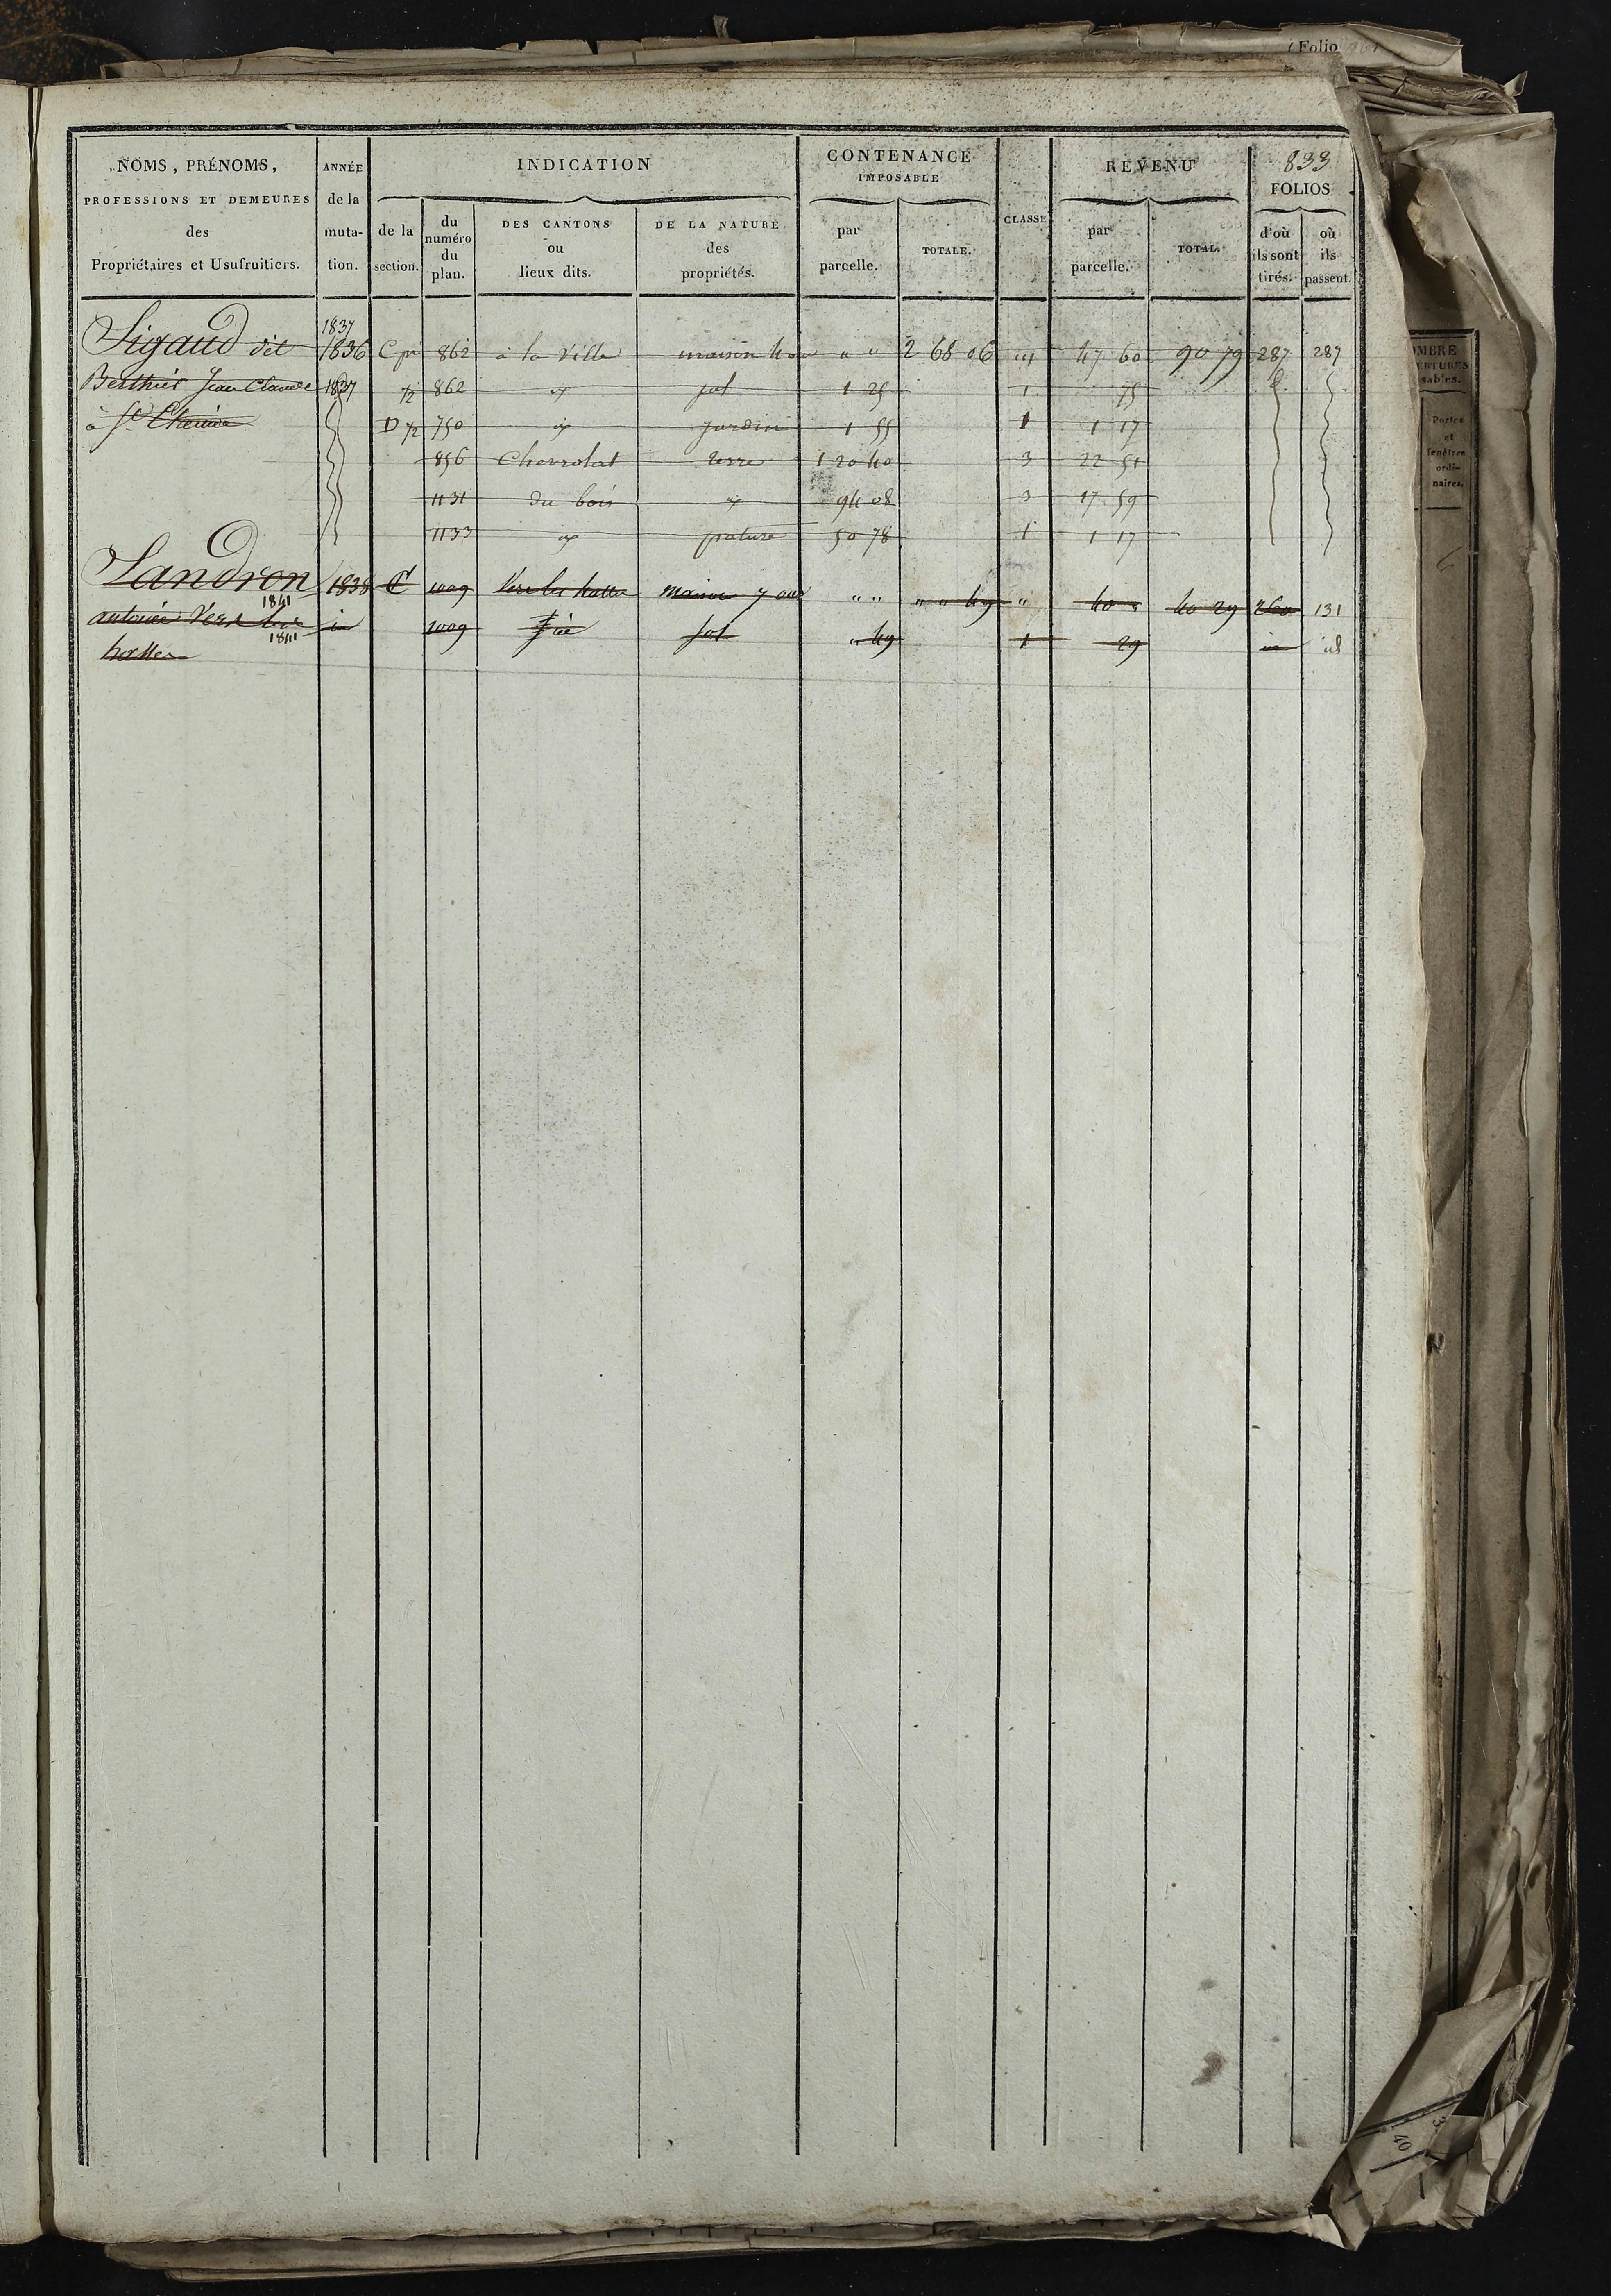 (Folio
833
NOMS, PRÉNOMS,
PROFESSIONS ET DEMEURES
des
Propriétaires et Usufruitiers.
ANNÉE
de la
muta-
tion.
INDICATION
de la
section.
du
numéro
du
plan.
DES CANTONS
ou
lieux dits.
DE LA NATURE
des
propriétés.
CONTENANCE
IMPOSABLE
par
parcelle.
TOTALE.
CLASSE
REVENU
par
parcelle.
TOTAL.
FOLIOS
d'où
ils sont
tirés.
où
ils
passent.
1837
Sigaud dit 1836 C 862 à la Ville maison " " 2 68 06 47 60 90 79 287 287
Berthier Jean Claude 1837 p 862 sol 1 25 1 75
à St D p 750 jardin 1 55 1 1 17
856 Chevrolat terre 1 20 40 3 22 51
1131 du bois 94 08 3 17 59
1133 pature 50 78 1 1 17
Landron 1838 C 1009 maison " " " " 49 " 40 " 40 29 260 131
1841
antoine 1009 sol " 49 1 29 id
1841
halles
OMBRE
Portes
et
fenêtres
ordi-
naires.
40